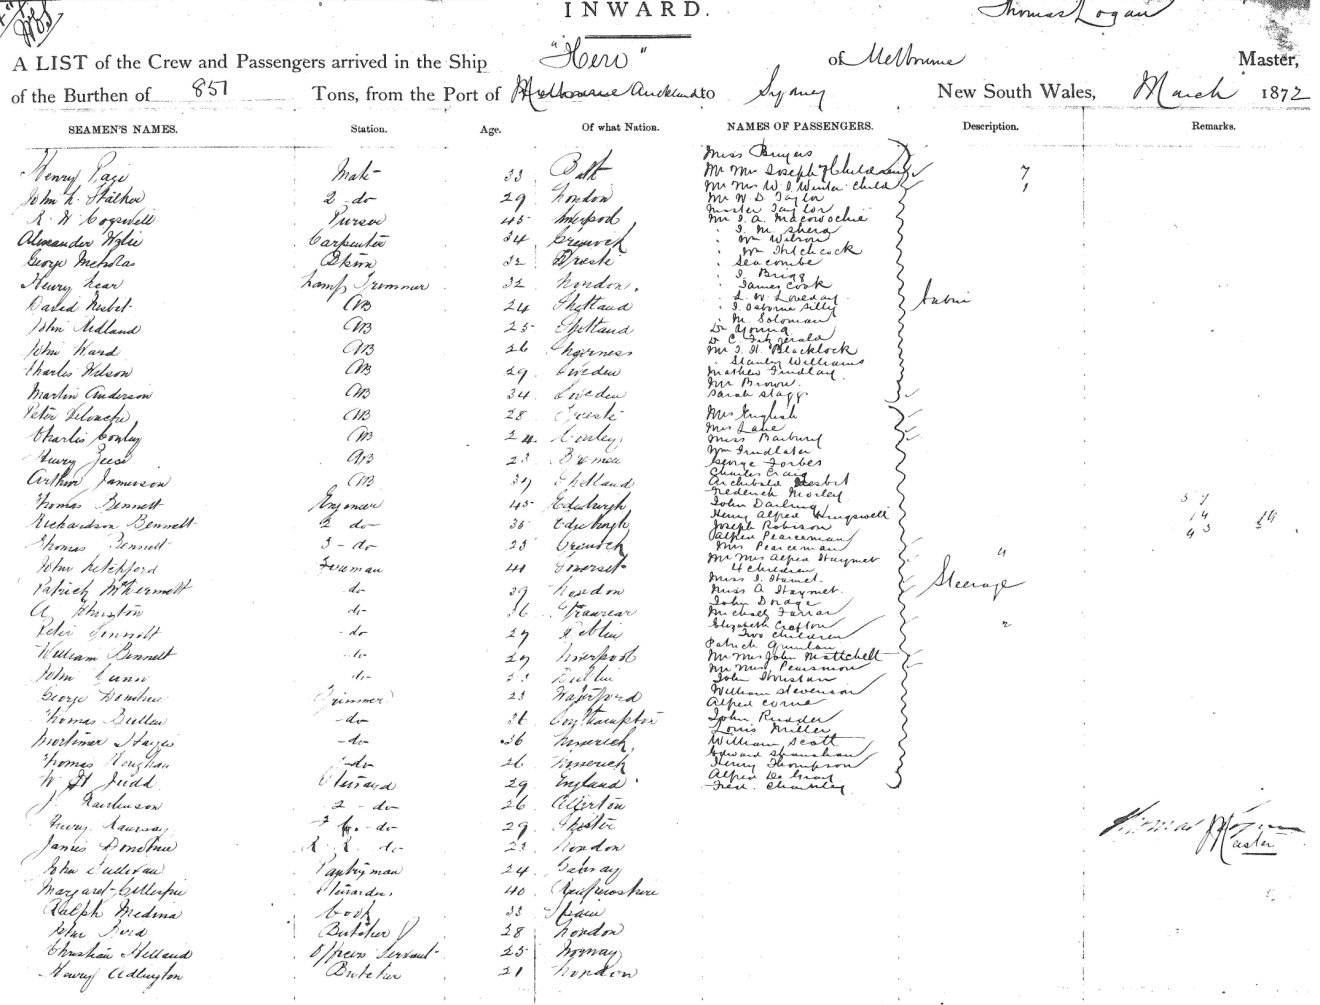 INWARD.
Thomas Logan
A LIST of the Crew and Passengers arrived in the Ship "Hero" of Melbourne Master,
of the Burthen of 851 Tons, from the Port of Melbourne Auckland to Sydney New South Wales, March 1872
SEAMEN'S NAMES. Station. Age. Of what Nation. NAMES OF PASSENGERS. Description. Remarks.
Henry Page Mate 33 Bath
John L. Stalker 2 do 29 London
R. W. Cogswell Purser 45 Liverpool
Alexander Wylie Carpenter 34 Greenock
George Nicholas 32
Henry Lear Lamp Trimmer 32 London.
David Nisbet AB 24 Shetland
John Redland AB 25 Shetland
John Ward AB 26
Charles Wilson AB 29 Sweden
Martin Anderson AB 34 Sweden
Peter AB 28
Charles Conley AB 24
Henry AB 23 Bremen
Arthur Jameson AB 39 Shetland
Thomas Bennett Engineer 45 Edinburgh
Richardson Bennett 2 do 35 Edinburgh
Thomas Bennett 3 - do 23 Greenock
John Fireman 40 Somerset
Patrick McDermott do 29 London
A. Thurston do 36 Stranraer
Peter Sennott do 27 Dublin
William Bennett do 29 Liverpool
John Dunn do 23 Dublin
George Donohue Trimmer 23 Waterford
Thomas Bullen do 36 Southampton
Mortimer Hayes do 36 Limerick
Thomas do 26 Limerick
W. H. Judd Steward 29 England
J. Rawlinson 2 - do 26 Ollerton
Henry Ramsay do 29 Chester
James Donohue do 23 London
John Sullivan Pantryman 24 Galway
Margaret Gillespie Stewardess 40 Renfrewshire
Ralph Medina Cook 33 Spain
John Butcher 28 London
Christian Officers Servant 25 Norway
Henry Adlington Butcher 21 London
Miss Buyers
Mr Mrs Joseph & Children 7
Mr Mrs W. J. Winter Child 1
Mr W. D. Taylor
Master Taylor
Mr J. A.
" J. M. Shera
" Wm Wilson
" Wm Hitchcock
" Seacombe
" J. Brigg
" James Cook
" L. W. Loveday
" J. Osborne Lilly
" M. Soloman
Dr Young
Dr C. Fitzgerald
Mr J. H. Blacklock
" Stanley Williams
Mathew Findlay
Mr Brown.
Sarah Stagg
Cabin
Mrs English
Mrs Lane
Miss
Wm Findlater
George Forbes
Charles Craig
Archibald Nesbit
Frederick Morley
John Darling
Henry Alfred Kingswell
Joseph Robison
Alfred Pearceman
Mrs Pearceman
Mr Mrs Alfred Haymet
4 Children 4
Miss J. Hamet.
Miss A Haymet.
John Dodge
Michael Farrar
Elizabeth Crofton
Two children 2
Patrick Quinlan
Mr Mrs John Mattchett
Mr Mrs Pearsmon
John Houstan
William Stevenson
Alfred Corne
John Rudder
Louis Miller
William Scott
Edward Shanahan
Henry Thompson
Alfred De Gray
Fred. Chamley
Steerage
57
14
Thomas Logan
Master